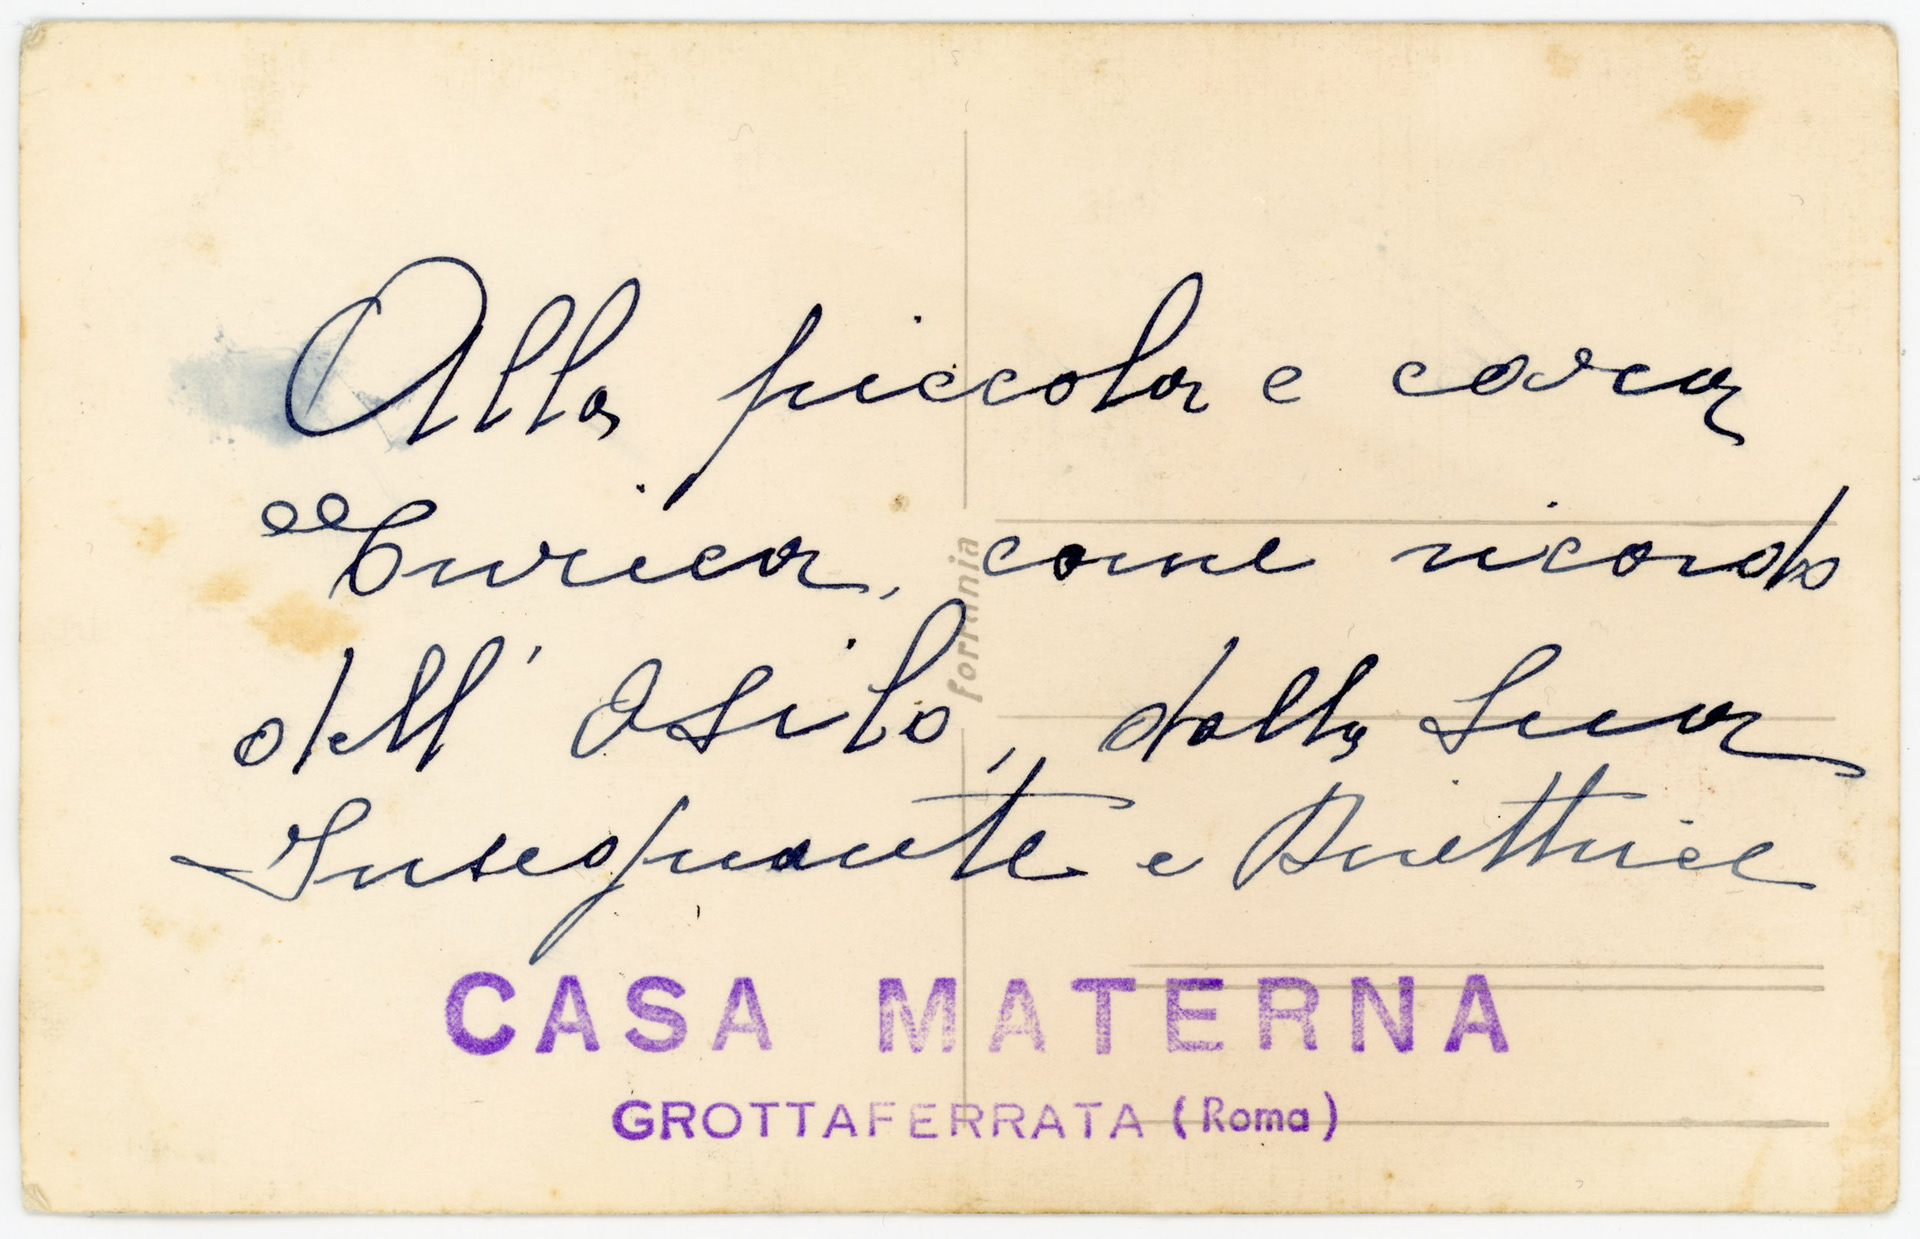 Alla piccola e cara
Enrica, come ricordo
dell' Asilo, dalla Sua
Insegnante e Direttrice
ferrania
CASA MATERNA
GROTTAFERRATA (Roma)